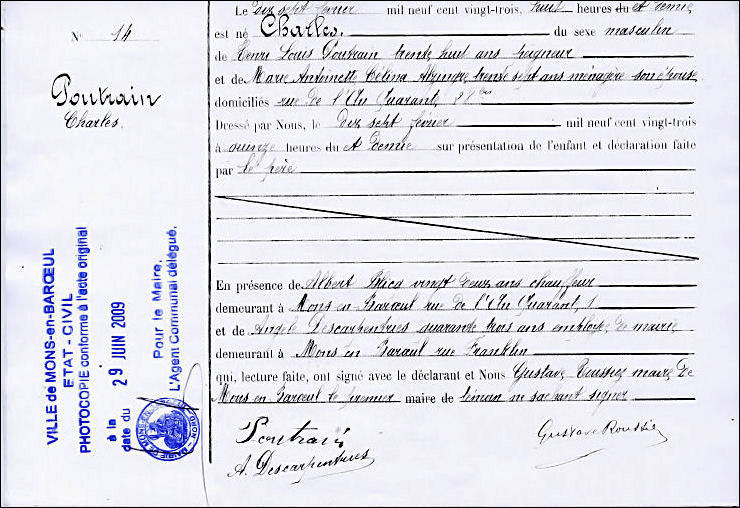 N° 14
Poutrain
Charles.
Le dix sept février mil neuf cent vingt-trois, huit heures du et demie
est né Charles. du sexe masculin
de Henri Louis Poutrain trente huit ans peigneur
et de Marie Antoinette Célina trente sept ans ménagère son épouse
domiciliés rue de l'An Quarante,
Dressé par Nous, le dix sept février mil neuf cent vingt-trois
à quinze heures du et demie sur présentation de l'enfant et déclaration faite
par le père
En présence de Albert vingt deux ans chauffeur
demeurant à Mons en Baroeul rue de l'An Quarante, 1
et de Angèle Descarpentries quarante trois ans employée de mairie
demeurant à Mons en Baroeul rue Franklin
qui, lecture faite, ont signé avec le déclarant et Nous Gustave Roussiez maire de
Mons en Baroeul le premier maire de témoin ne sachant signer
Poutrain
A. Descarpentries
Gustave Roussiez
VILLE de MONS-en-BARŒUL
ETAT - CIVIL
PHOTOCOPIE conforme à l'acte original
à la
date du 29 JUIN 2009
Pour le Maire,
L'Agent Communal délégué.